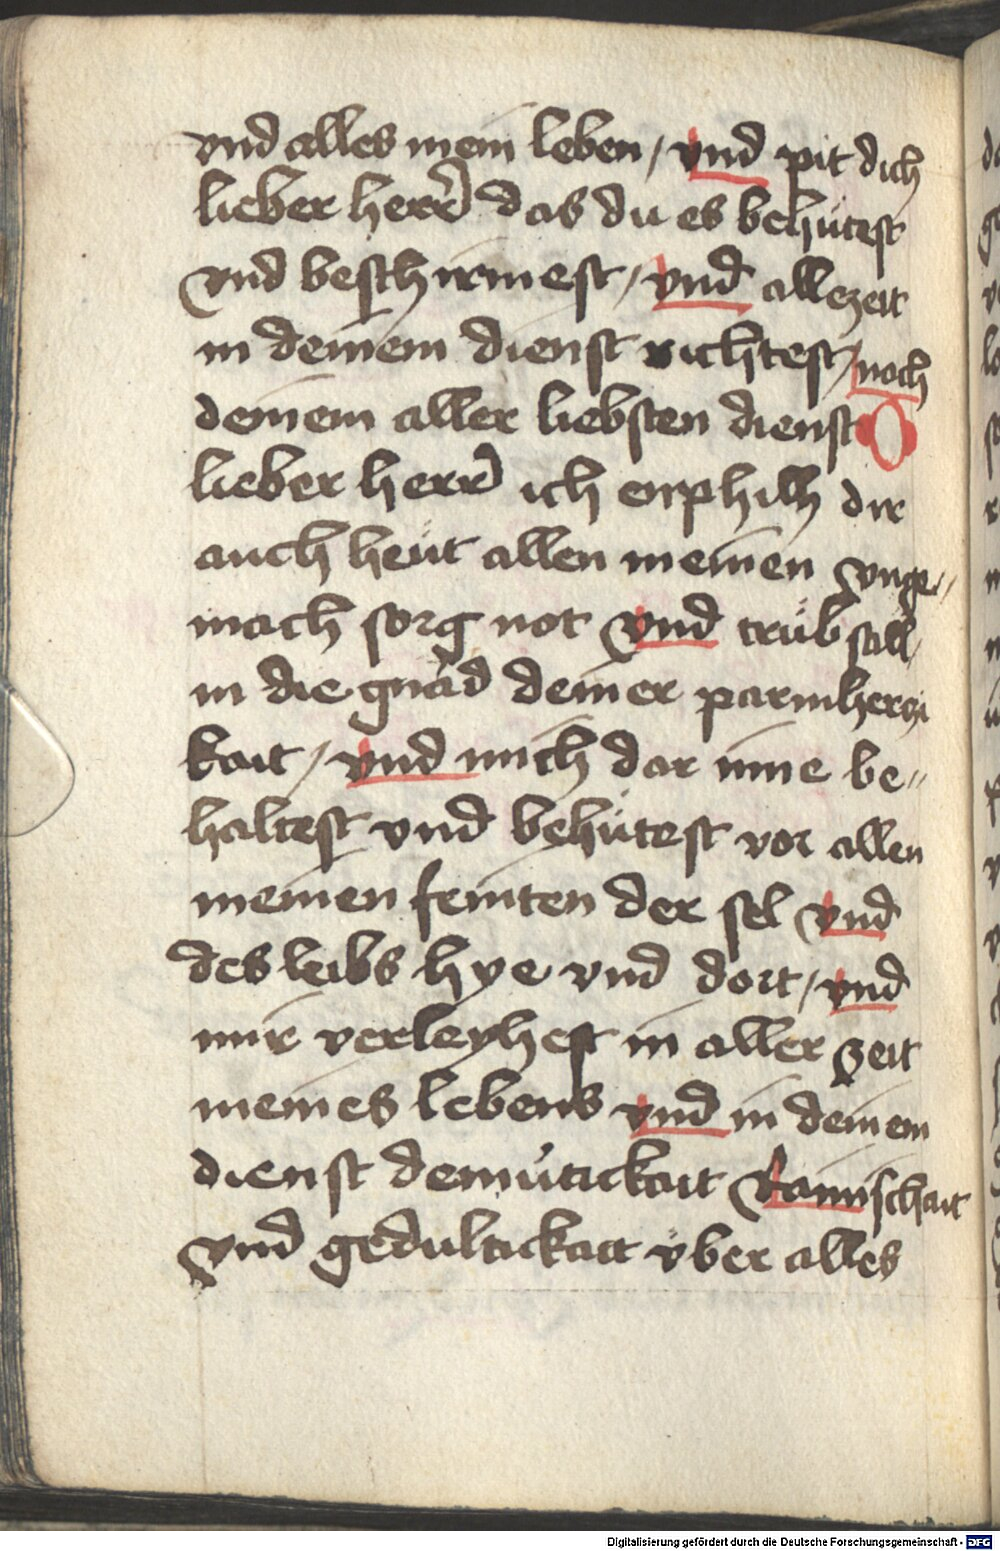 vnd alles mein leben / vnd pit dich
lieber herr das du es behütest
vnd beschirmest / vnd allezeit
in deinem dienst richtest / noch
deinem aller liebsten dienst O
lieber herr ich enphilh dir
auch heüt allen meinen vnge〃
mach sorg not vnd trübsall /
in die gnad deiner parmherczi
kait / vnd mich dar inne be〃
haltest vnd behütest vor allen
meinen feinten der sel vnd
des leibs hye vnd dort / vnd
mir verleyhest in aller zeit
meines lebens vnd in deinem
dienst demütickait
vnd gedultickait vber alles
Digitalisierung gefördert durch die Deutsche Forschungsgemeinschaft - DFG